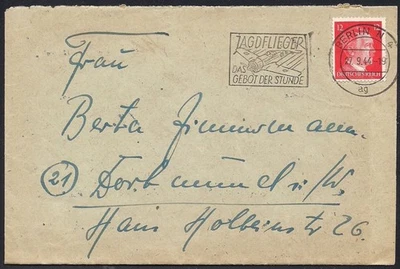 JAGDFLIEGER
DAS
GEBOT DER STUNDE
BERLIN N 4
27.9.44-19
ag
12
DEUTSCHES REICH
Frau
Berta Zimmermann
21 Dortmund i/W.
Hans Holbeinstr 26